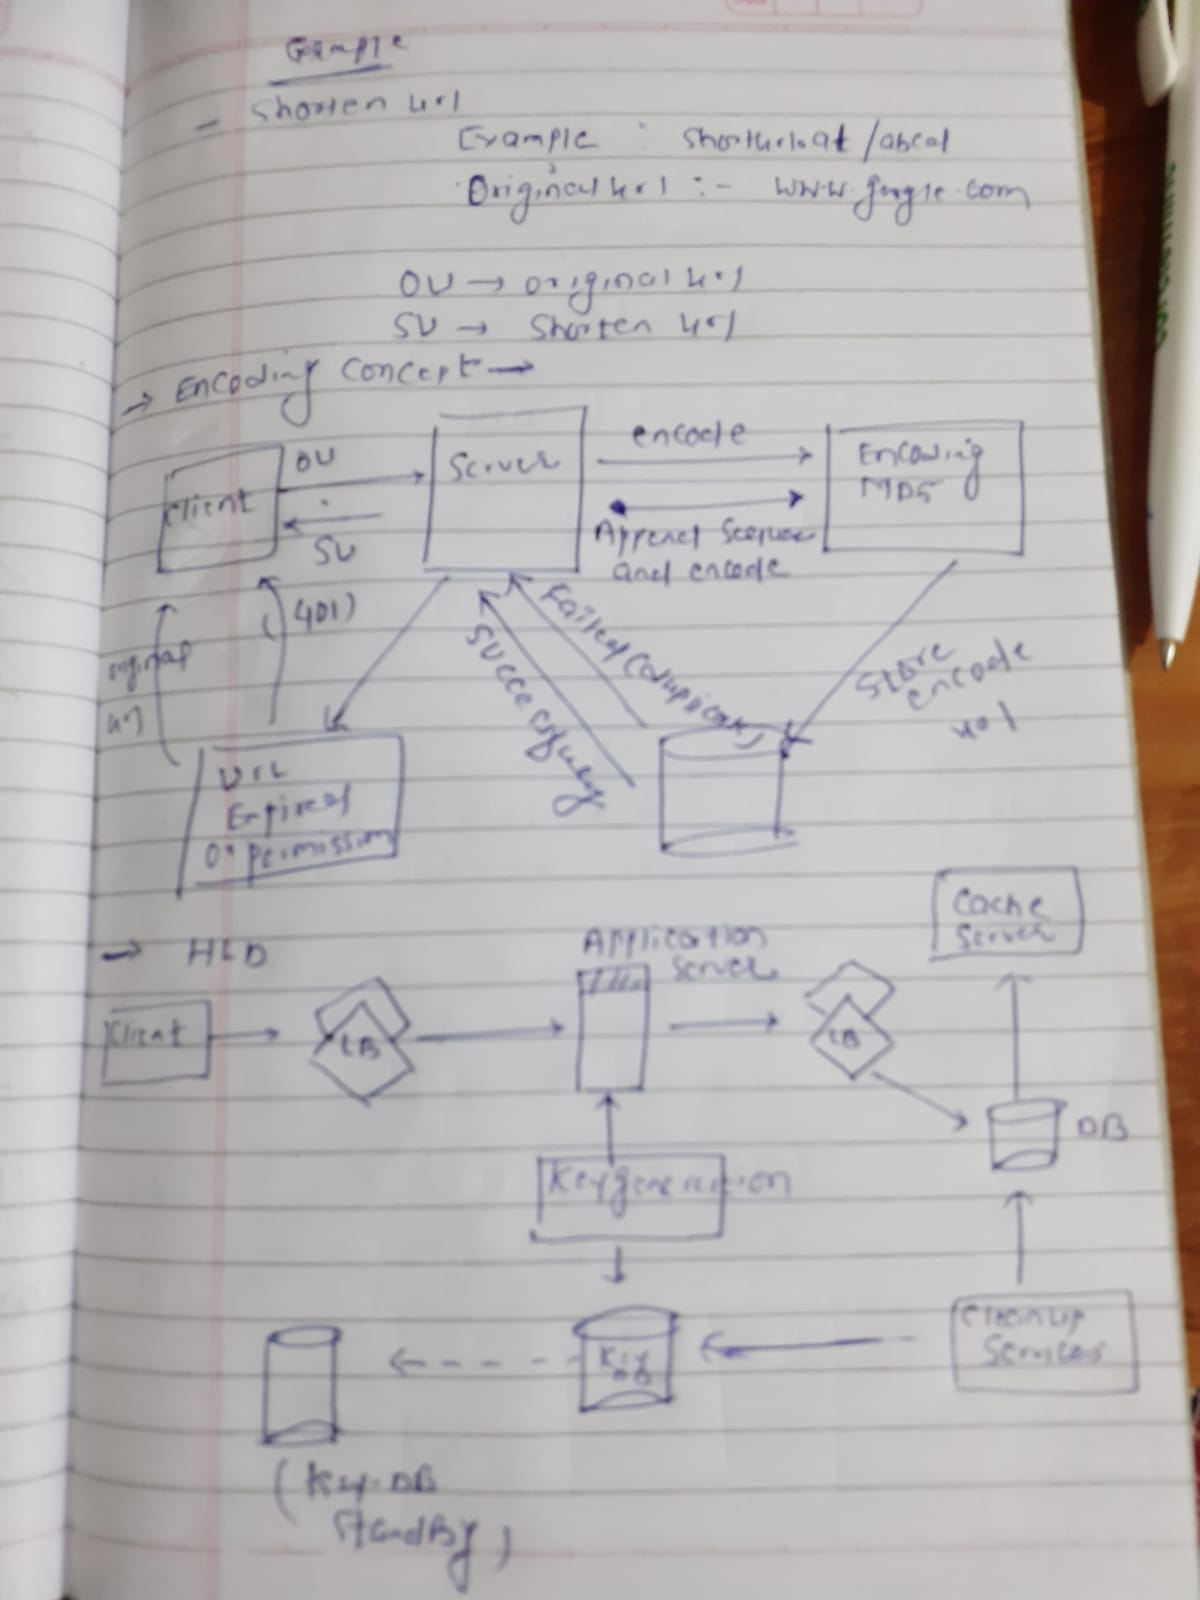 Example
- Shorten url
Example : Shorturl.at/abcd
Original url :- www.google.com
OU → original url
SU → Shorten url
→ Encoding Concept →
Client
OU
SU
Server
encode
Append Sequence
and encode
Encoding
MD5
original
url
(401)
Successfully
Failed (Duplicate)
Store
encode
url
URL
Expired
or permission
→ HLD
Client
LB
Application
Server
LB
Cache
Server
DB
Key generation
Key
DB
Cleanup
Services
(Key-DB
StandBy)